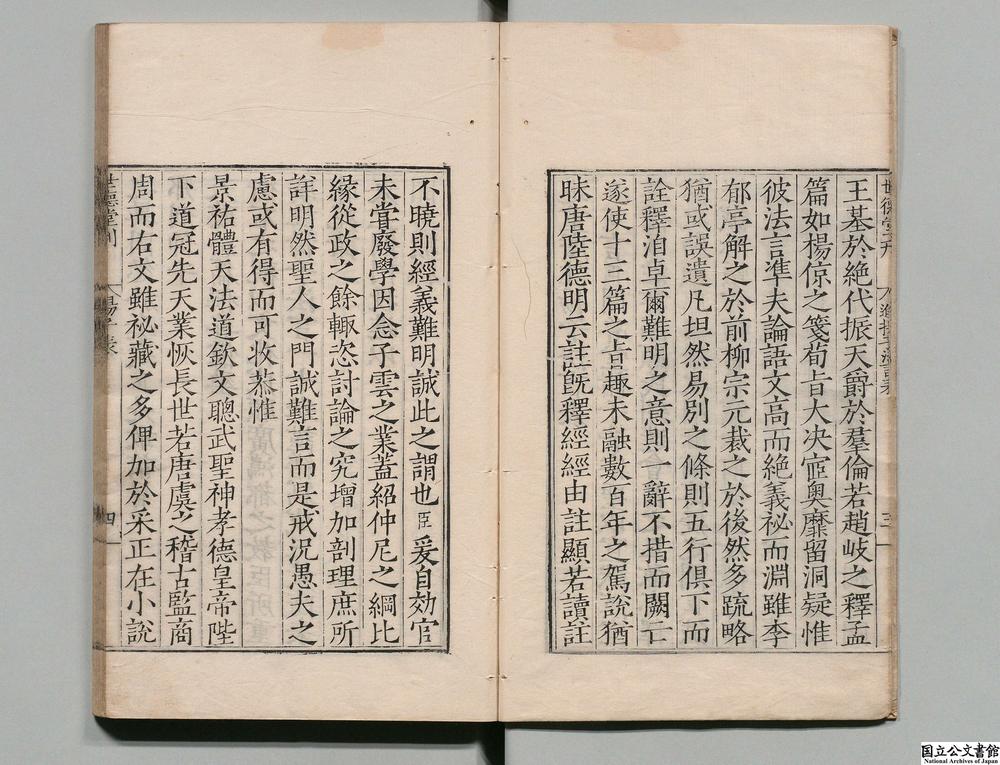 世德堂刊
三
王基於絶代振天爵於羣倫若趙岐之釋孟
篇如楊倞之箋荀旨大決㝛奧靡留洞疑惟
彼法言凖夫論語文高而絶義祕而淵雖李
郁亭解之於前柳宗元裁之於後然多疏略
猶或誤遺凡坦然易別之條則五行俱下而
詮釋洎卓爾難明之意則一辭不措而闕亡
遂使十三篇之旨趣未融數百年之駕說猶
昧唐陸德明云註旣釋經經由註顯若讀註
不曉則經義難明誠此之謂也臣爰自効官
未嘗廢學因念子雲之業蓋紹仲尼之綱比
緣從政之餘輙恣討論之究增加剖理庶所
詳明然聖人之門誠難言而是戒況愚夫之
慮或有得而可收恭惟
景祐體天法道欽文聰武聖神孝德皇帝陛
下道冠先天業恢長世若唐虞之稽古監商
周而右文雖祕藏之多俾加於采正在小說
世德堂刊
四
国立公文書館
National Archives of Japan